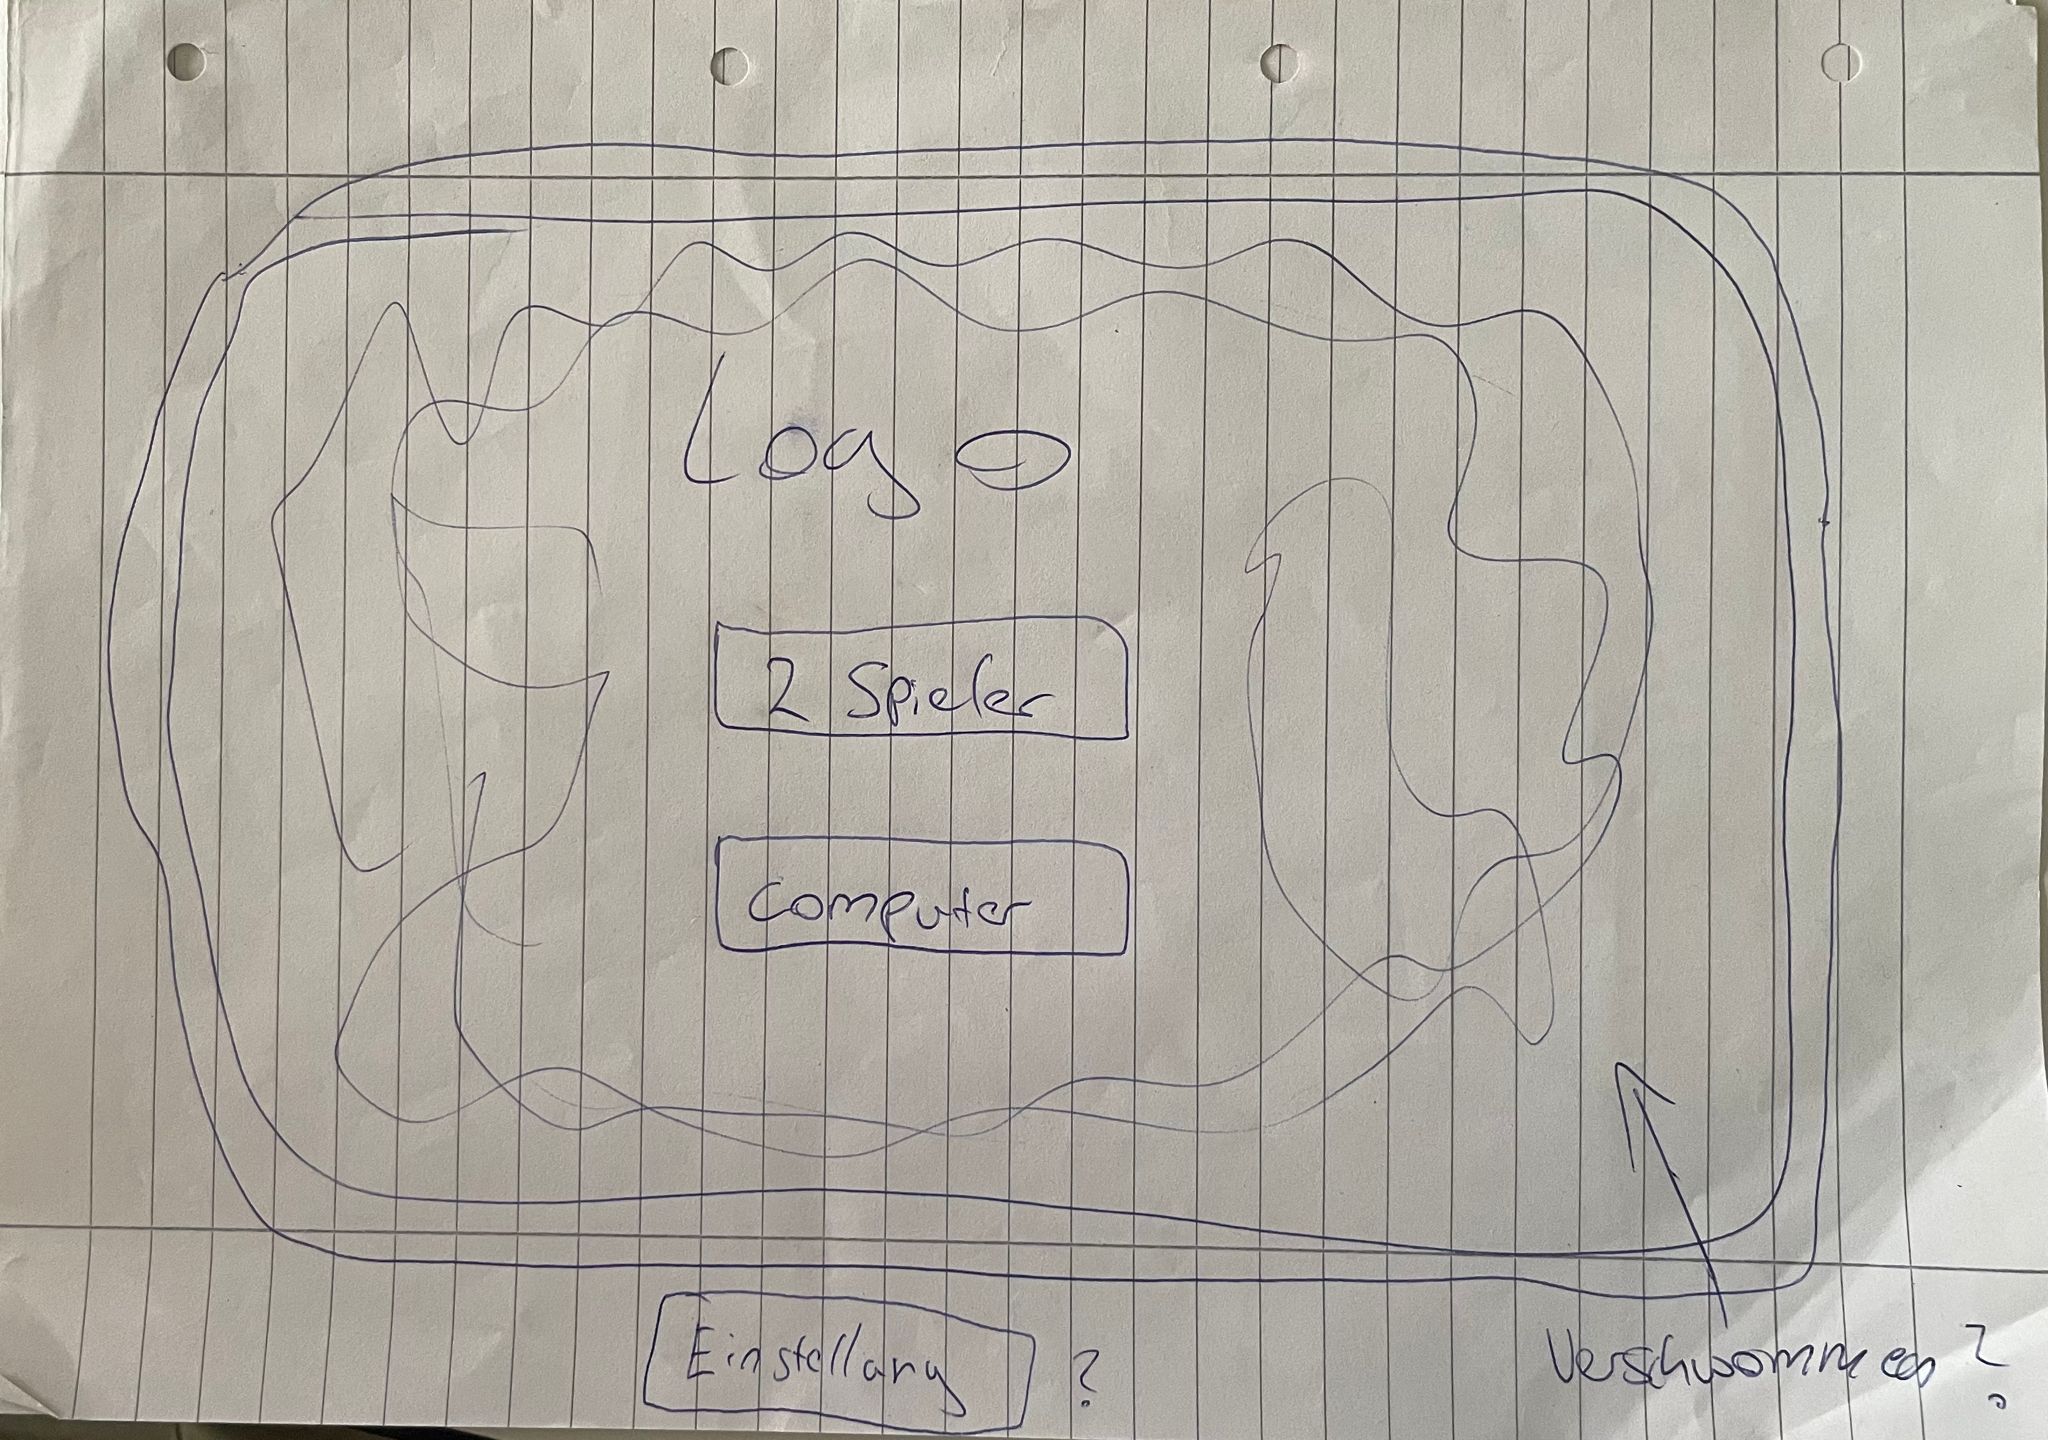 Logo
2 Spieler
Computer
Einstellung ?
Verschwommen ?